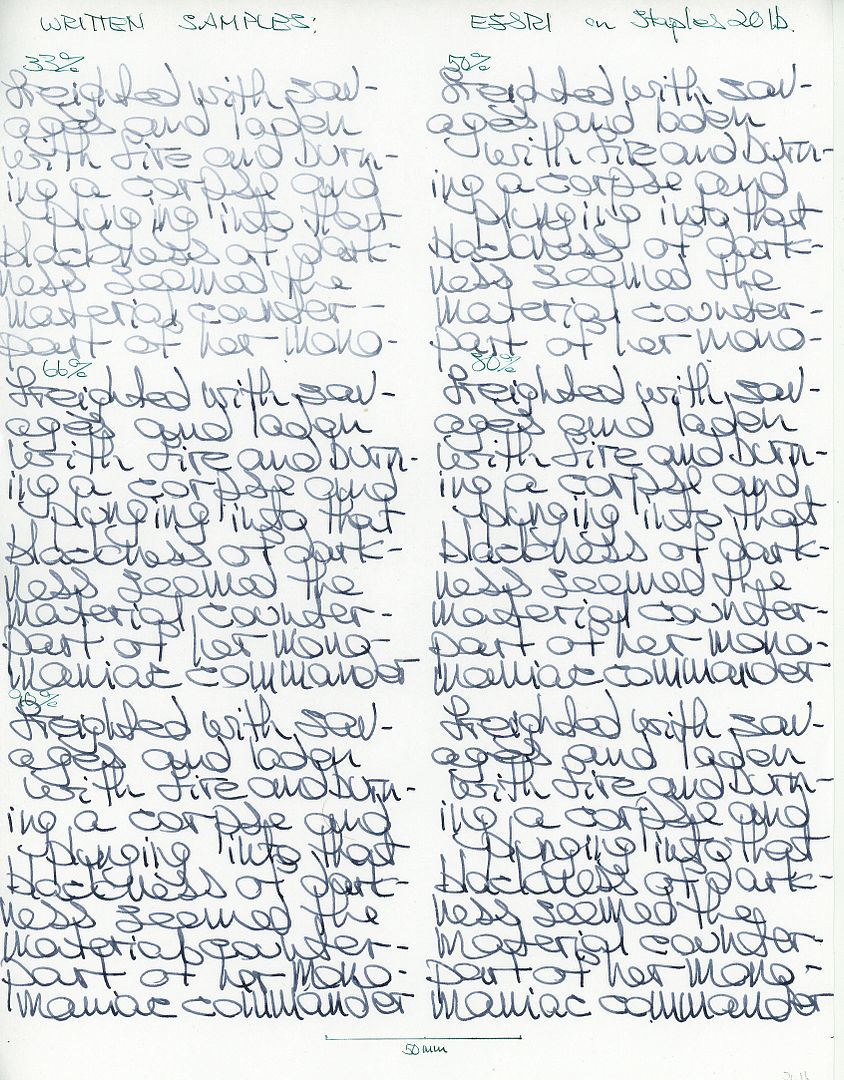 WRITTEN SAMPLES:
ESSRI on Staples 20 lb.
33%
freighted with sav-
ages and laden
with fire and burn-
ing a corpse and
plunging into that
blackness of dark-
ness seemed the
material counter-
part of her mono-
50%
freighted with sav-
ages and laden
with fire and burn-
ing a corpse and
plunging into that
blackness of dark-
ness seemed the
material counter-
part of her mono-
66%
freighted with sav-
ages and laden
with fire and burn-
ing a corpse and
plunging into that
blackness of dark-
ness seemed the
material counter-
part of her mono-
maniac commander
80%
freighted with sav-
ages and laden
with fire and burn-
ing a corpse and
plunging into that
blackness of dark-
ness seemed the
material counter-
part of her mono-
maniac commander
freighted with sav-
ages and laden
with fire and burn-
ing a corpse and
plunging into that
blackness of dark-
ness seemed the
material counter-
part of her mono-
maniac commander
freighted with sav-
ages and laden
with fire and burn-
ing a corpse and
plunging into that
blackness of dark-
ness seemed the
material counter-
part of her mono-
maniac commander
50 mm